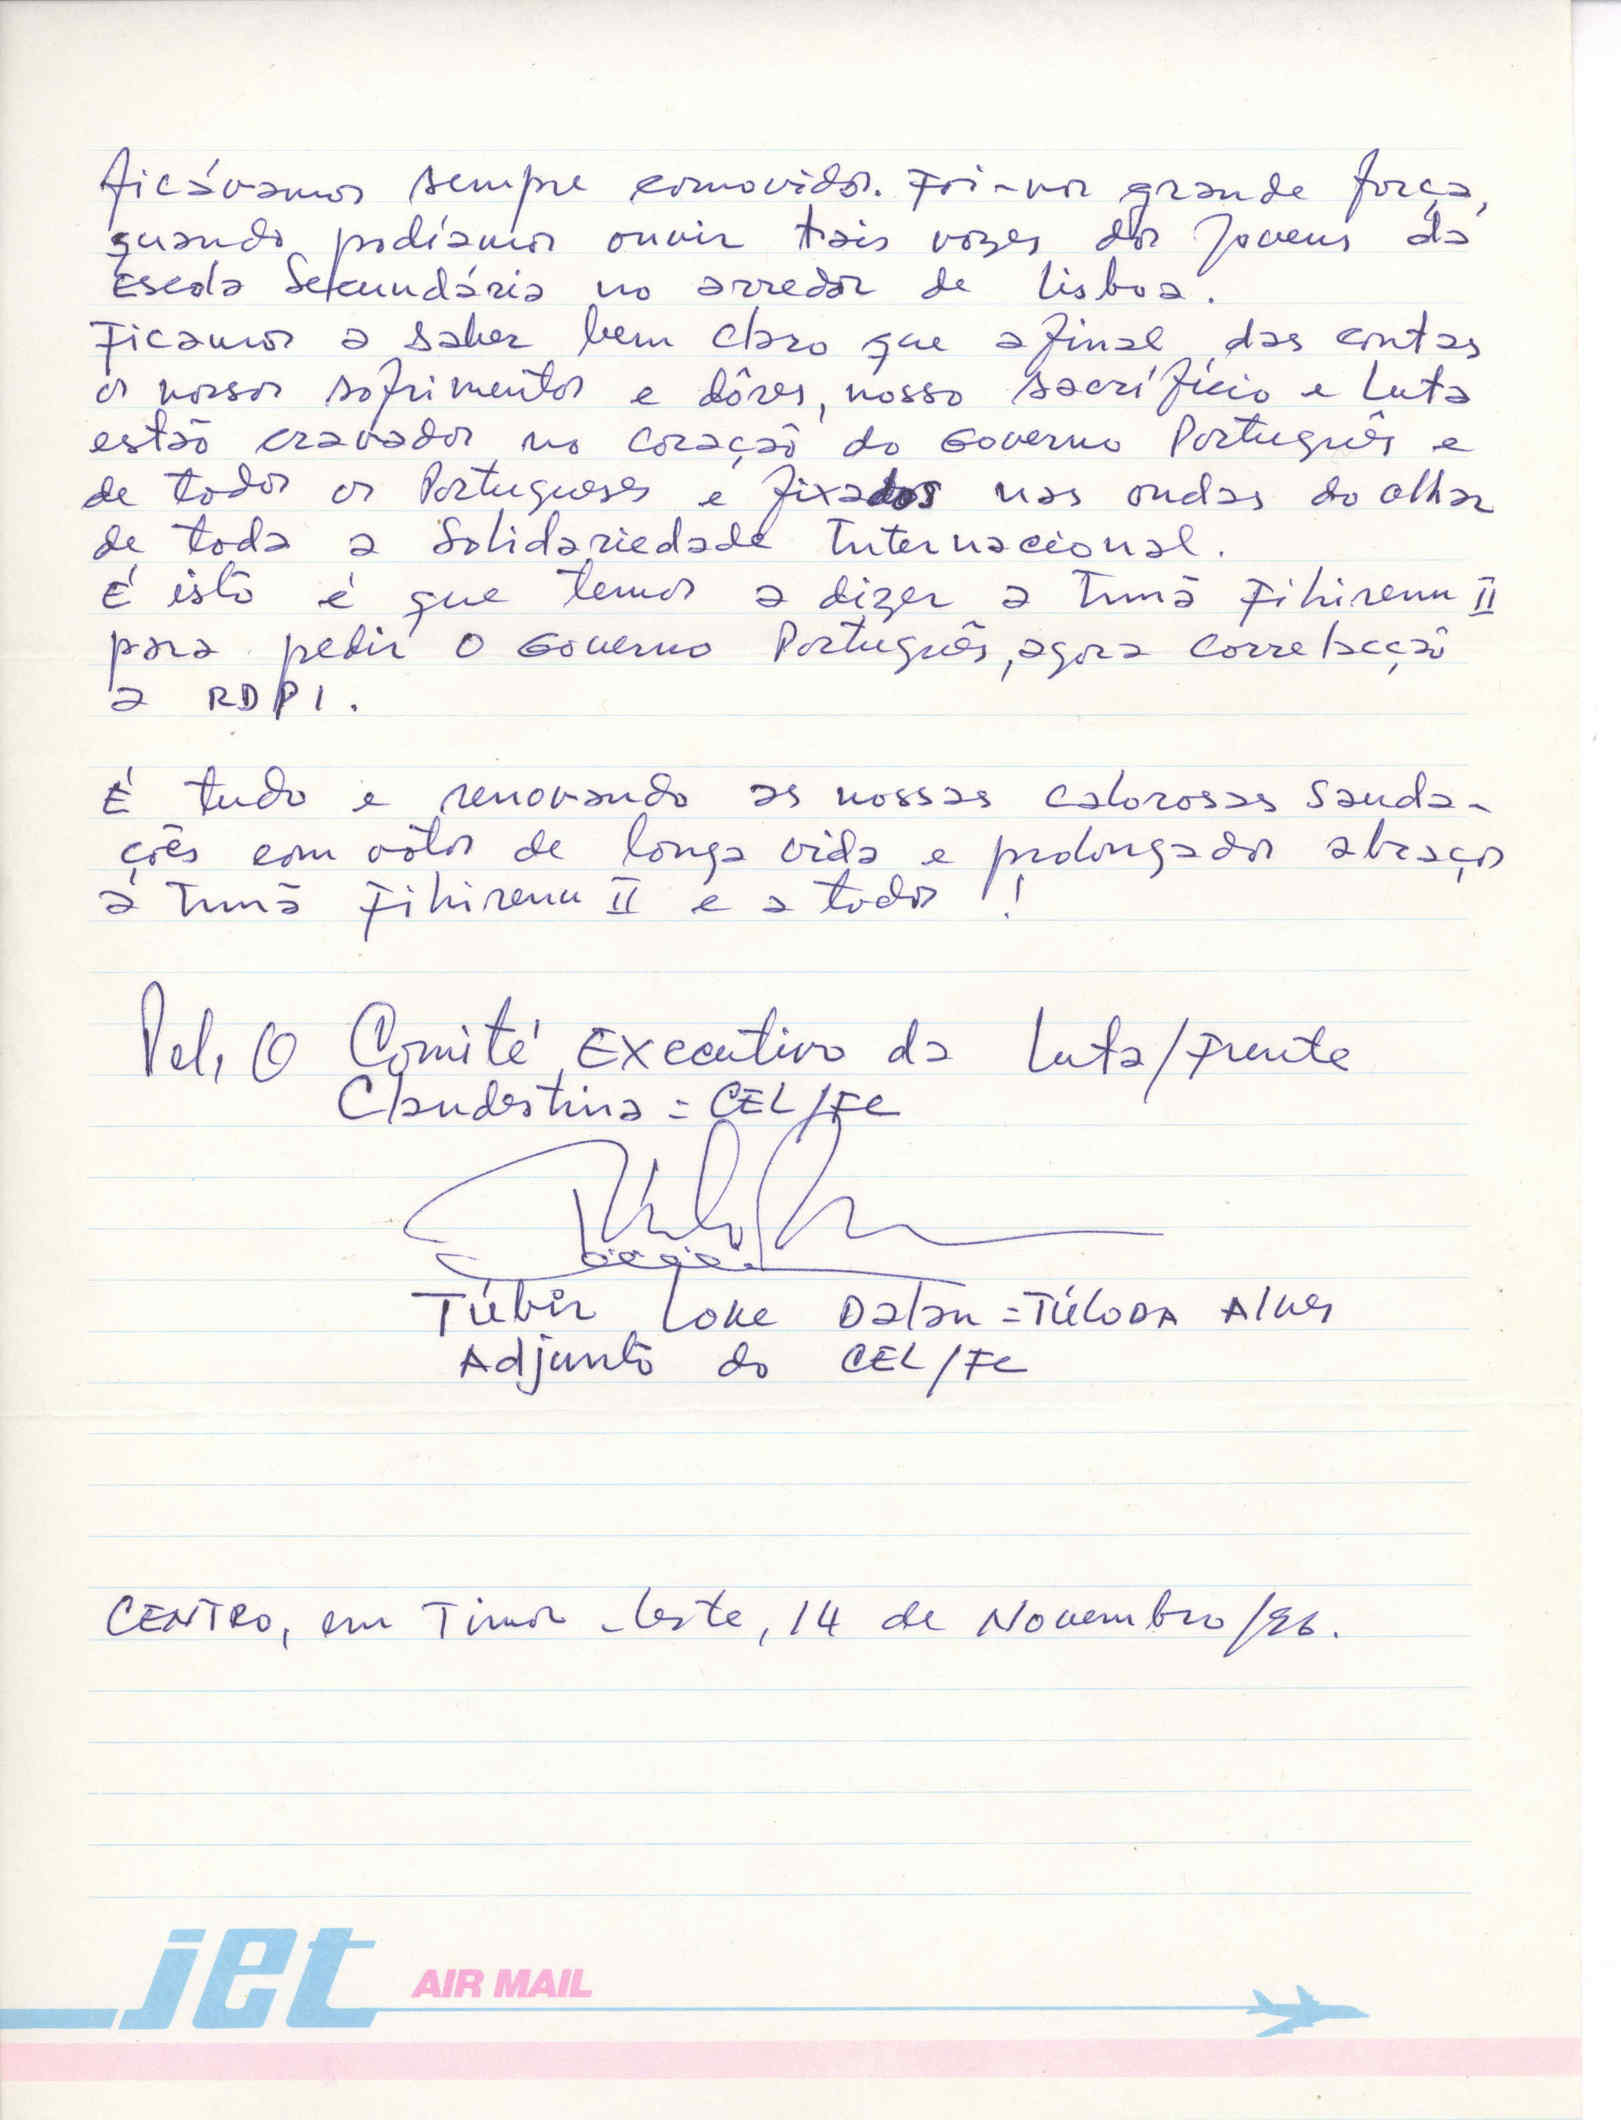 ficávamos sempre comovidos. Foi-nos grande força,
quando podíamos ouvir tais vozes dos Jovens da
Escola Secundária no arredor de Lisboa.
Ficamos a saber bem claro que afinal das contas
os nossos sofrimentos e dôres, nosso sacrifício e Luta
estão cravados no coração do Governo Português e
de todos os Portugueses e fixados nas ondas do olhar
de toda a Solidariedade Internacional.
É isto é que temos a dizer a Irmã Fihirenu II
para pedir o Governo Português, agora correlacção
a RDPI.
É tudo e renovando as nossas calorosas sauda-
ções com vótos de longa vida e prolongados abraços
à Irmã Fihirenu II e a todos !
Pel, O Comité Executivo da Luta/Frente
Clandestina = CEL/FC
Túbir Loke Dalan = TÚLODA Alves
Adjunto do CEL/FC
CENTRO, em Timor-Leste, 14 de Novembro/96.
jet AIR MAIL